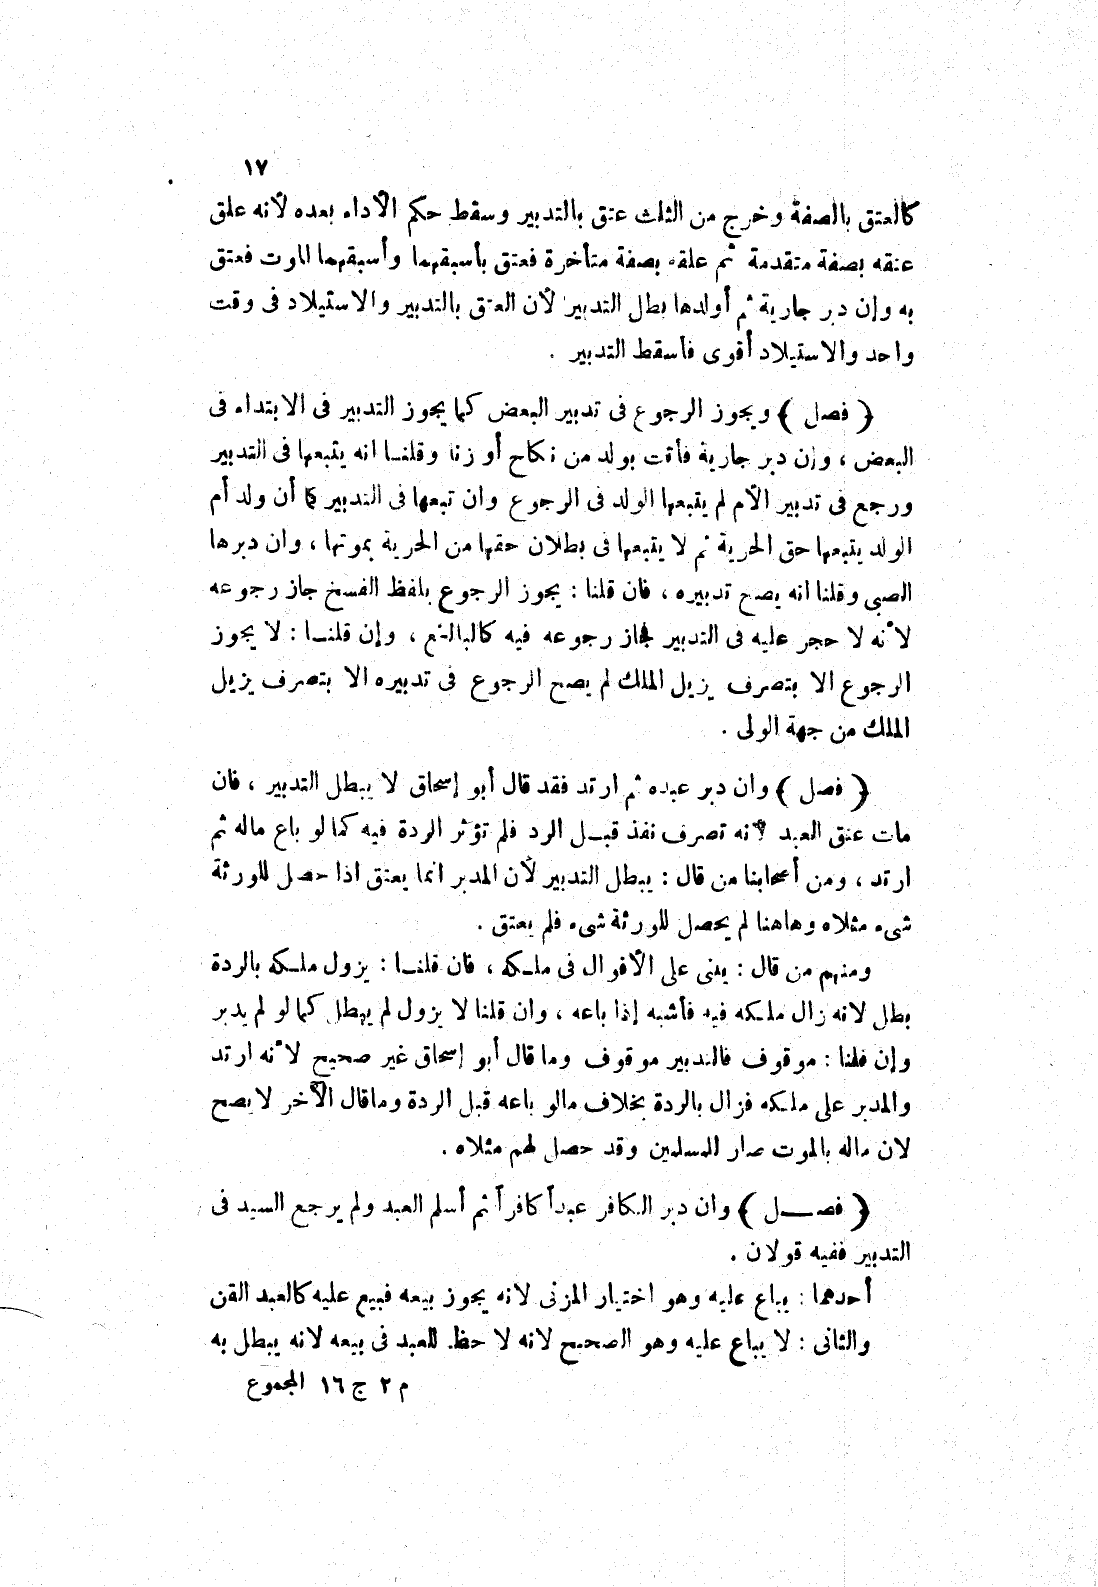 ١٧
كالعتق بالصفة وخرج من الثلث عتق بالتدبير وسقط حكم الأداء بعده لأنه علق
عتقه بصفة متقدمة ثم علقه بصفة متأخرة فعتق بأسبقهما وأسبقهما الموت فعتق
به وإن دبر جارية ثم أولدها بطل التدبير لأن العتق بالتدبير والاستيلاد فى وقت
واحد والاستيلاد أقوى فأسقط التدبير .
( فصل ) ويجوز الرجوع فى تدبير البعض كما يجوز التدبير فى الابتداء فى
البعض ، وإن دبر جارية فأتت بولد من نكاح أو زنا وقلنا انه يتبعها فى التدبير
ورجع فى تدبير الأم لم يتبعها الولد فى الرجوع وان تبعها فى التدبير كما أن ولد أم
الولد يتبعها حق الحرية ثم لا يتبعها فى بطلان حقها من الحرية بموتها ، وان دبرها
الصبى وقلنا انه يصح تدبيره ، فان قلنا : يجوز الرجوع بلفظ الفسخ جاز رجوعه
لأنه لا حجر عليه فى التدبير فجاز رجوعه فيه كالبالغ ، وإن قلنا : لا يجوز
الرجوع الا بتصرف يزيل الملك لم يصح الرجوع فى تدبيره الا بتصرف يزيل
الملك من جهة الولى .
( فصل ) وان دبر عبده ثم ارتد فقد قال أبو إسحاق لا يبطل التدبير ، فان
مات عتق العبد لأنه تصرف نفذ قبل الرد فلم تؤثر الردة فيه كما لو باع ماله ثم
ارتد ، ومن أصحابنا من قال : يبطل التدبير لأن المدبر انما يعتق اذا حصل للورثة
شىء مثلاه وهاهنا لم يحصل للورثة شىء فلم يعتق .
ومنهم من قال : يبنى على الأقوال فى ملكه ، فان قلنا : يزول ملكه بالردة
بطل لانه زال ملكه فيه فأشبه إذا باعه ، وان قلنا لا يزول لم يبطل كما لو لم يدبر
وإن قلنا : موقوف فالتدبير موقوف وما قال أبو إسحاق غير صحيح لأنه ارتد
والمدبر على ملكه فزال بالردة بخلاف مالو باعه قبل الردة وماقال الآخر لا يصح
لان ماله بالموت صار للمسلمين وقد حصل لهم مثلاه .
( فصل ) وان دبر الكافر عبداً كافراً ثم أسلم العبد ولم يرجع السيد فى
التدبير ففيه قولان .
أحدهما : يباع عليه وهو اختيار المزنى لانه يجوز بيعه فبيع عليه كالعبد القن
والثانى : لا يباع عليه وهو الصحيح لانه لا حظ للعبد فى بيعه لانه يبطل به
م ٢ ج ١٦ المجموع